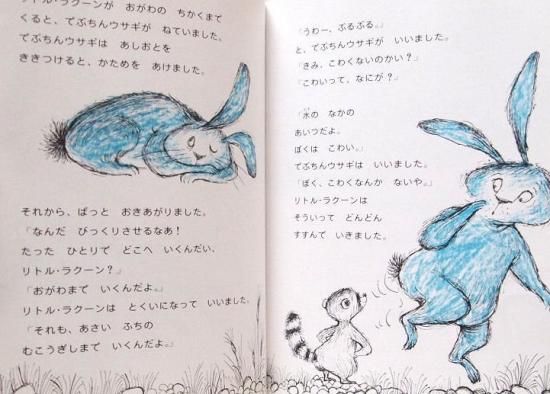 リトル・ラクーンが おがわの ちかくまで
くると、でぶちんウサギが ねていました。
でぶちんウサギは あしおとを
ききつけると、かためを あけました。
それから、ぱっと おきあがりました。
「なんだ びっくりさせるなあ!
たった ひとりで どこへ いくんだい、
リトル・ラクーン?」
「おがわまで いくんだよ。」
リトル・ラクーンは とくいになって いいました。
「それも、あさい ふちの
むこうぎしまで いくんだよ。」
「うわー、ぶるぶる。」
と、でぶちんウサギが いいました。
「きみ、こわくないのかい?」
「こわいって、なにが?」
「水の なかの
あいつだよ。
ぼくは こわい。」
でぶちんウサギは いいました。
「ぼく、こわくなんか ないや。」
リトル・ラクーンは
そういって どんどん
すすんで いきました。